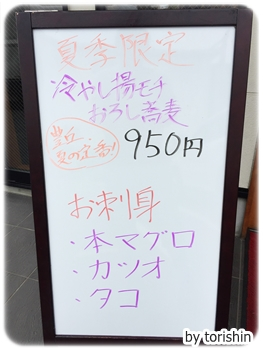 夏季限定
冷やし揚モチ
おろし蕎麦
豊丘、
夏の定番!
950円
お刺身
・本マグロ
・カツオ
・タコ
by torishin